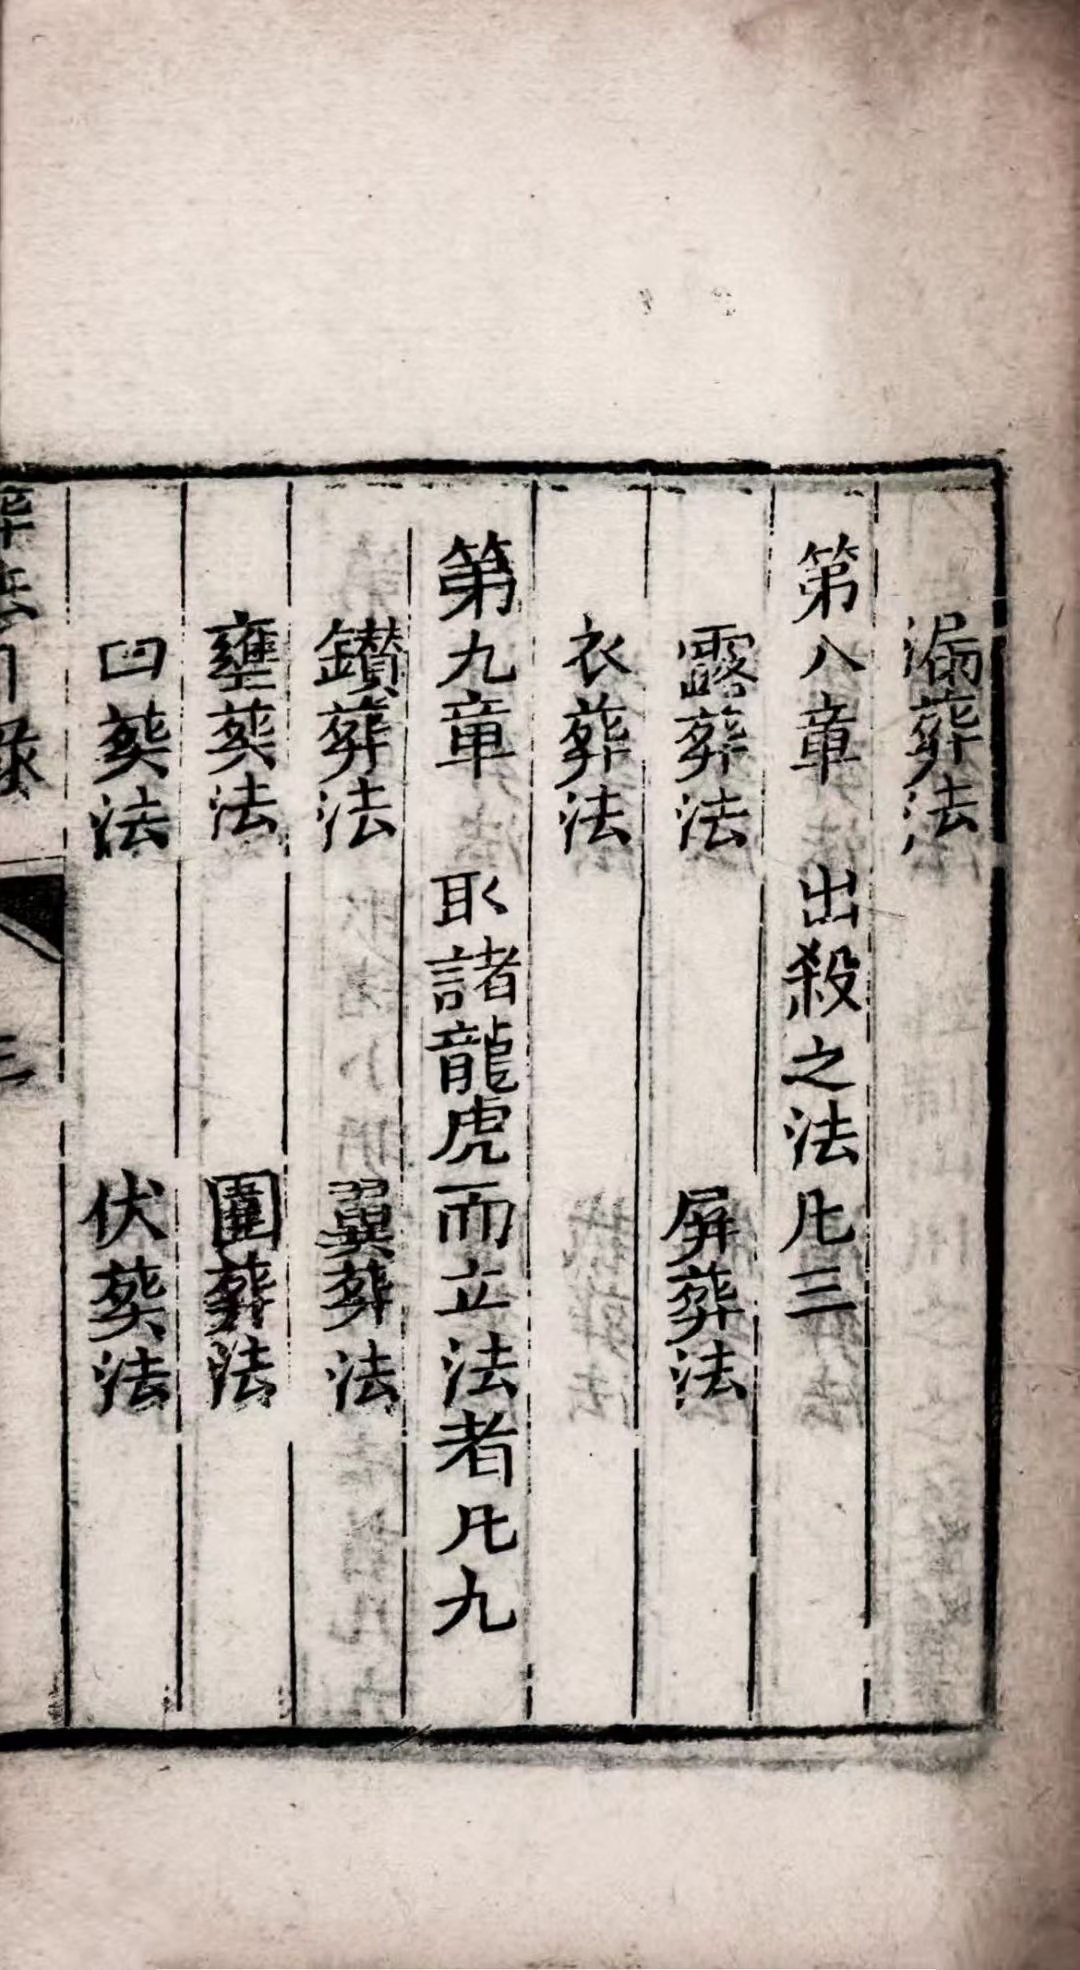 漏葬法
第八章 出殺之法凡三
露葬法 屏葬法
衣葬法
第九章 取諸龍虎而立法者凡九
鑚葬法 翼葬法
壅葬法 圍葬法
凹葬法 伏葬法